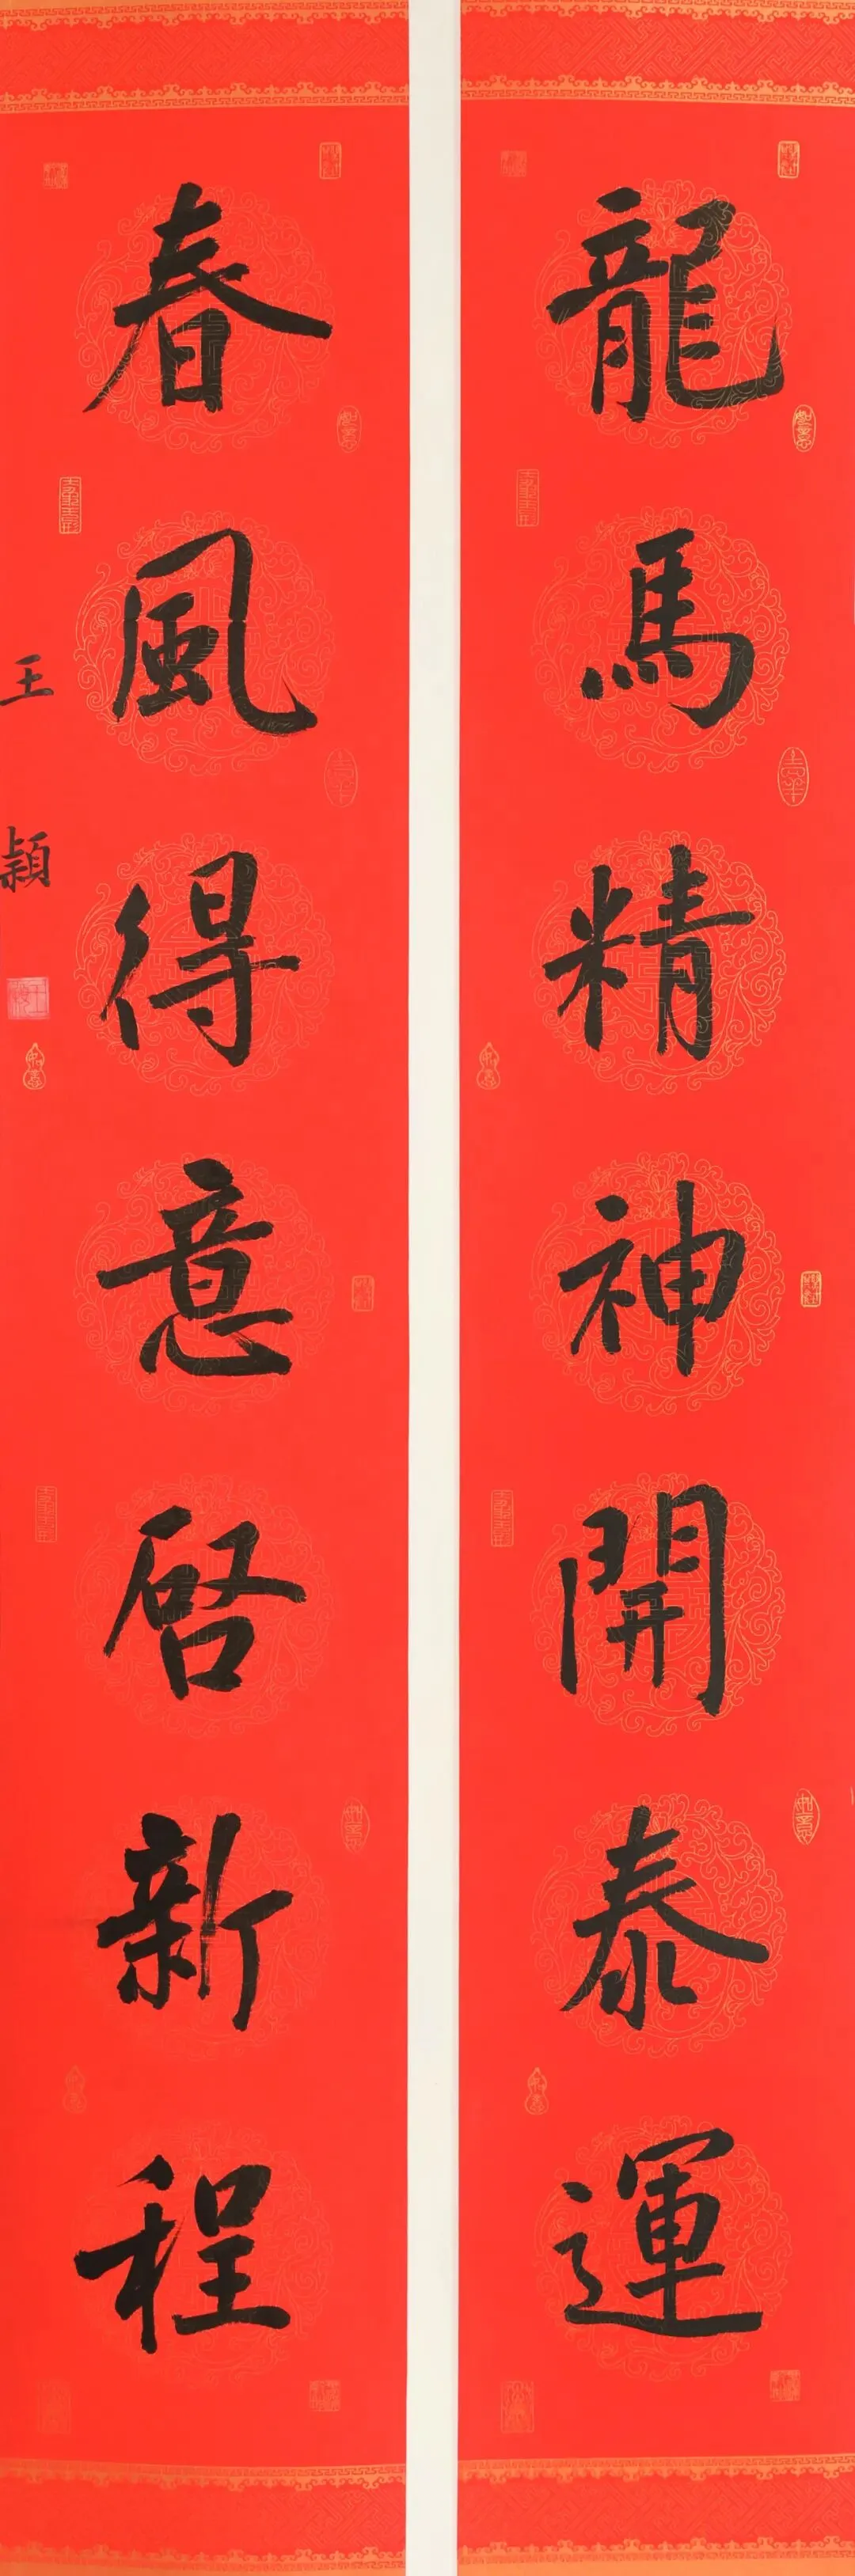 龍馬精神開泰運
春風得意啓新程
王頴